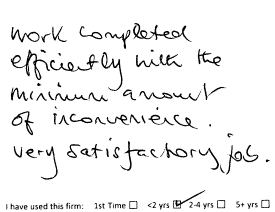 work completed
efficiently with the
minimum amount
of inconvenience.
very satisfactory job.
I have used this firm: 1st Time ☐ <2 yrs ☑ 2-4 yrs ☐ 5+ yrs ☐